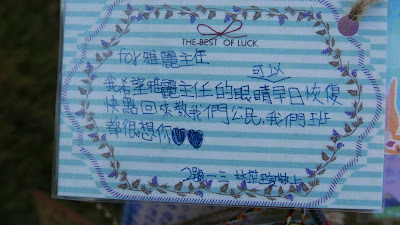 THE BEST OF LUCK.
for 雅麗主任
可以
我希望雅麗主任的眼睛早日恢復
快點回來教我們公民,我們班
都很想你